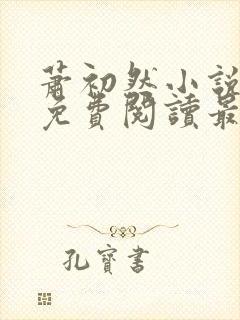 蕭初然小說
免費閱讀最
孔寶書